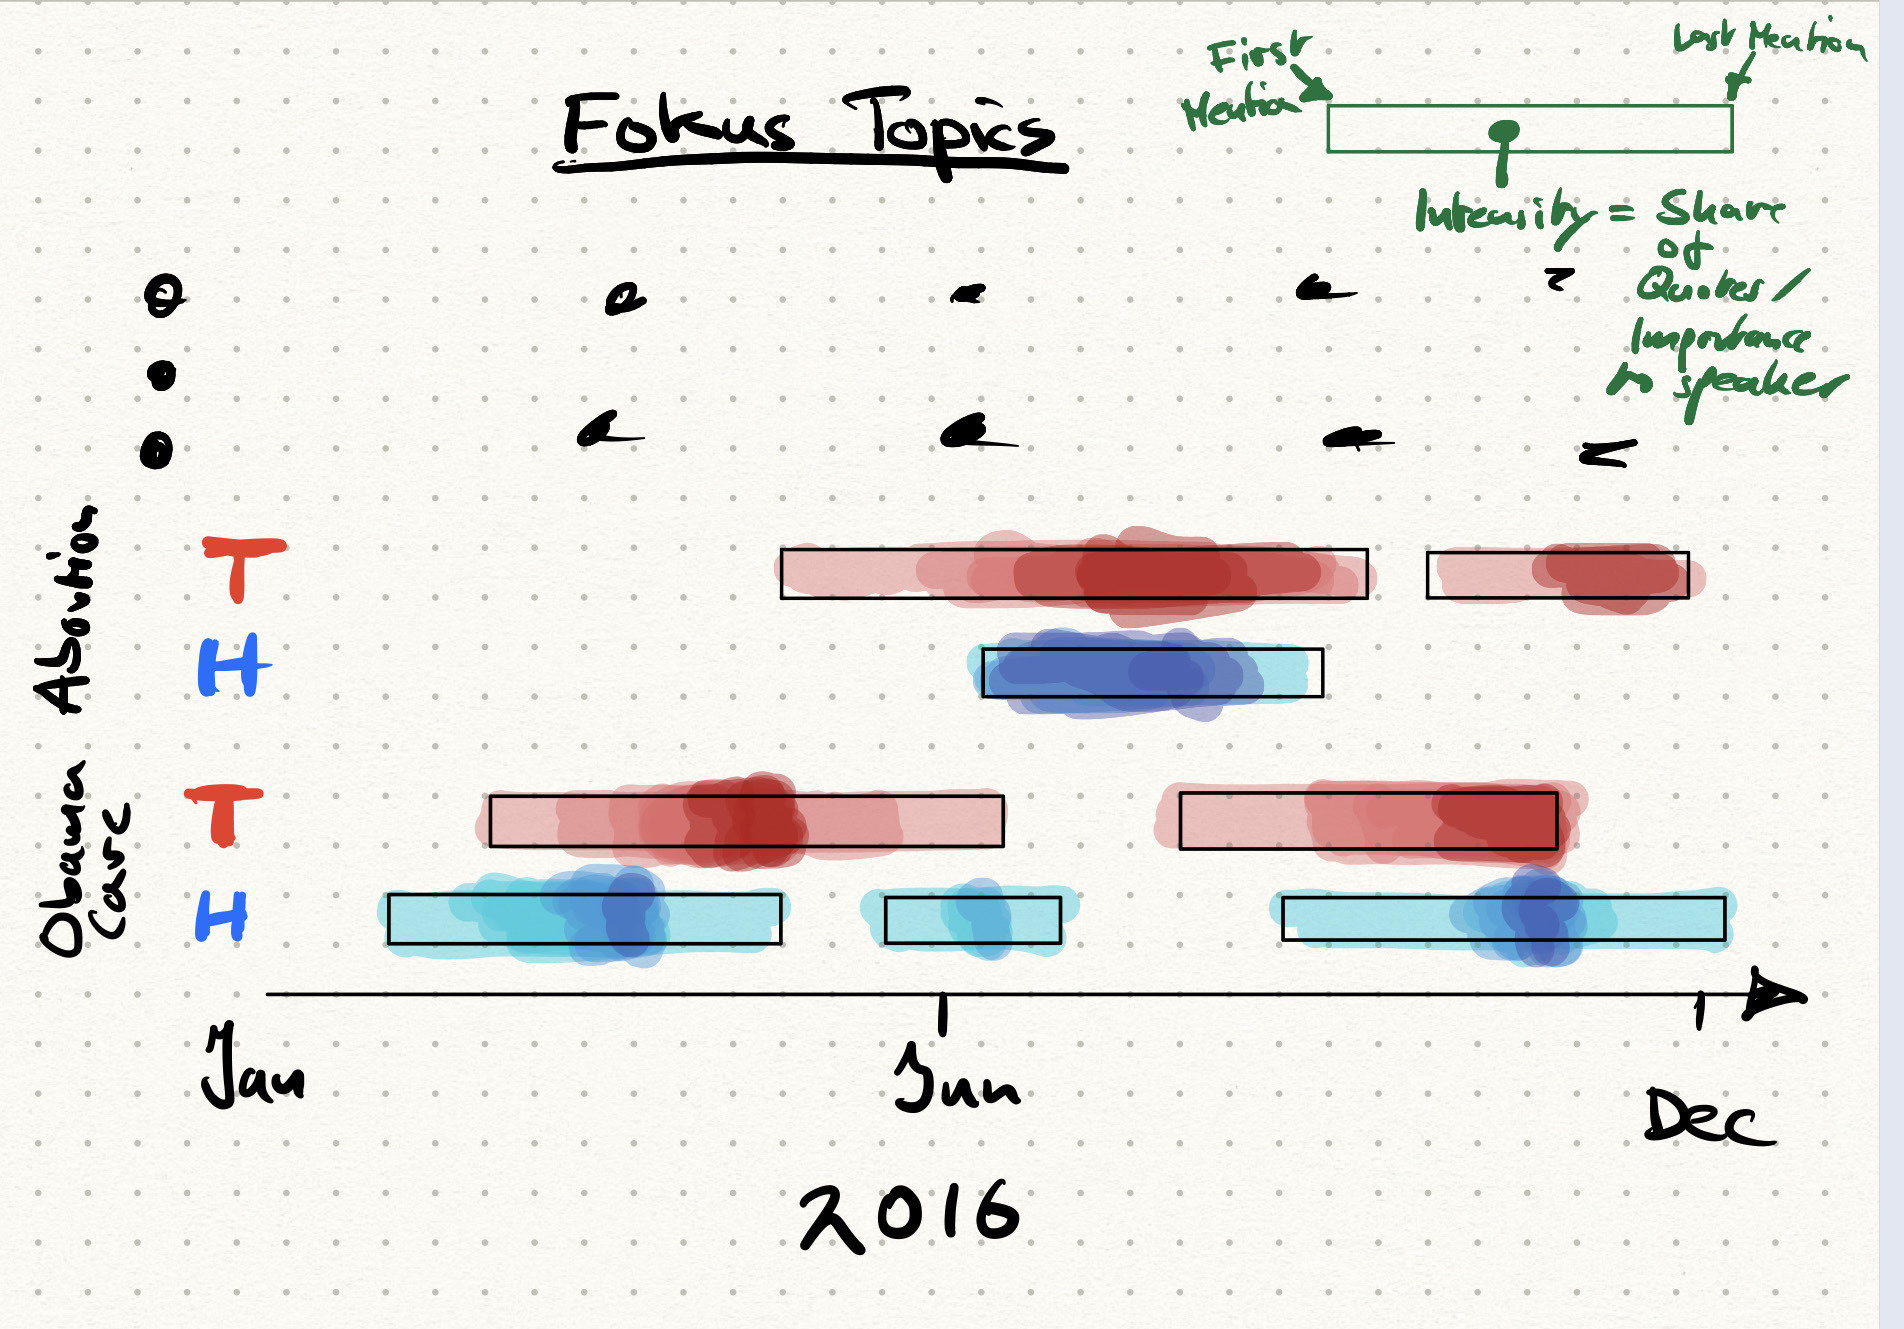 Fokus Topics
First
Mention
Last Mention
Intensity = Share
of
Quotes /
Importance
to speaker
Abortion
T
H
Obama
Care
T
H
Jan
Jun
Dec
2016